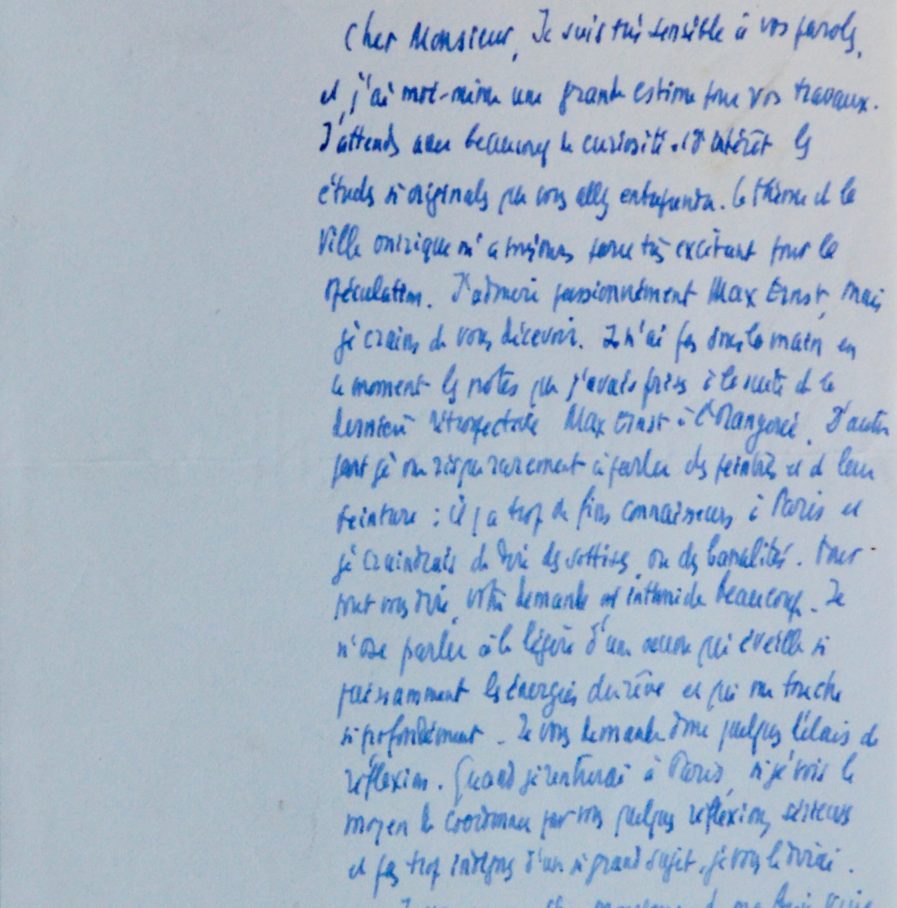 Cher Monsieur, Je suis très sensible à vos paroles,
et j'ai moi-même une grande estime pour vos travaux.
J'attends avec beaucoup de curiosité et d'intérêt les
études si originales que vous allez entreprendre. Le thème de la
Ville onirique m'a toujours paru très excitant pour la
spéculation. J'admire passionnément Max Ernst, mais
je crains de vous décevoir. Je n'ai pas sous la main en
ce moment les notes que j'avais prises à la suite de la
dernière rétrospective Max Ernst à l'Orangerie. D'autre
part je me risque rarement à parler des peintres et de leur
peinture : il y a trop de fins connaisseurs à Paris et
je craindrais de dire des sottises, ou des banalités. Pour
tout vous dire, votre demande m'intimide beaucoup. Je
n'ose parler à la légère d'une œuvre qui éveille si
puissamment les énergies du rêve et qui me touche
si profondément. Je vous demande donc quelques délais de
réflexion. Quand je rentrerai à Paris, si je vois le
moyen de coordonner pour vous quelques réflexions sérieuses
et pas trop indignes d'un si grand sujet, je vous le dirai.